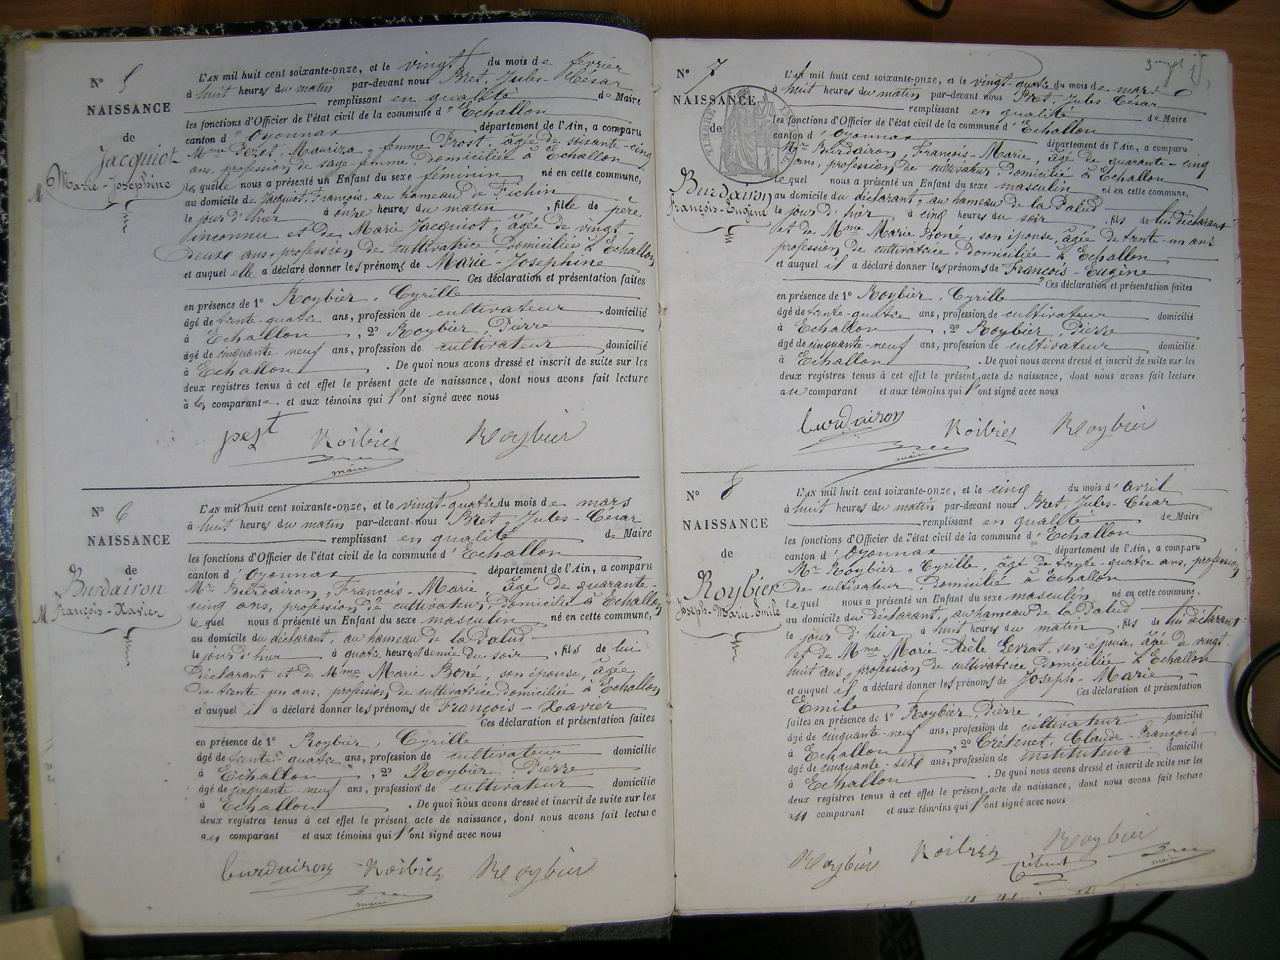 N° 5
NAISSANCE
de
Jacquiot
Marie-Josephine
L'AN mil huit cent soixante-onze, et le vingt du mois de février
à huit heures du matin par-devant nous Bret, Jules-César
remplissant en qualité de Maire
les fonctions d'Officier de l'état civil de la commune d'Echallon
canton d'Oyonnax département de l'Ain, a comparu
Mme femme Prost, âgée de soixante-cinq
ans, profession de sage femme domiciliée à Echallon
laquelle nous a présenté un Enfant du sexe féminin né en cette commune,
au domicile de Jacquiot, François, au hameau de
le jour d'hier à onze heures du matin, fille de père
inconnu et de Marie Jacquiot, âgée de vingt-
deux ans, profession de cultivatrice Domiciliée à Echallon
et auquel elle a déclaré donner les prénoms de Marie-Josephine
Ces déclaration et présentation faites
en présence de 1° Roybier, Cyrille
âgé de trente-quatre ans, profession de cultivateur domicilié
à Echallon, 2° Roybier Pierre
âgé de cinquante neuf ans, profession de cultivateur domicilié
à Echallon. De quoi nous avons dressé et inscrit de suite sur les
deux registres tenus à cet effet le présent acte de naissance, dont nous avons fait lecture
à la comparante et aux témoins qui l'ont signé avec nous
Roibier Roybier
Bret
maire
N° 6
NAISSANCE
de
Burdairon
M François-Xavier
L'AN mil huit cent soixante-onze, et le vingt-quatre du mois de mars
à huit heures du matin par-devant nous Bret, Jules-César
remplissant en qualité de Maire
les fonctions d'Officier de l'état civil de la commune d'Echallon
canton d'Oyonnax département de l'Ain, a comparu
Mr Burdairon, François-Marie, âgé de quarante-
cinq ans, profession de cultivateur, domicilié à Echallon
lequel nous a présenté un Enfant du sexe masculin né en cette commune,
au domicile du déclarant, au hameau de la Palud
le jour d'hier à quatre heures et demie du soir, fils de lui
déclarant et de Mme Marie Boné, son épouse, âgée
de trente un ans, profession de cultivatrice domiciliée à Echallon
et auquel il a déclaré donner les prénoms de François-Xavier
Ces déclaration et présentation faites
en présence de 1° Roybier, Cyrille
âgé de trente quatre ans, profession de cultivateur domicilié
à Echallon, 2° Roybier Pierre
âgé de cinquante neuf ans, profession de cultivateur domicilié
à Echallon. De quoi nous avons dressé et inscrit de suite sur les
deux registres tenus à cet effet le présent acte de naissance, dont nous avons fait lecture
au comparant et aux témoins qui l'ont signé avec nous
Burdairon Roibier Roybier
Bret
maire
N° 7
NAISSANCE
de
Burdairon
François-Eugène
L'AN mil huit cent soixante-onze, et le vingt-quatre du mois de mars
à huit heures du matin par-devant nous Bret, Jules César
remplissant en qualité de Maire
les fonctions d'Officier de l'état civil de la commune d'Echallon
canton d'Oyonnax département de l'Ain, a comparu
Mr Burdairon, François-Marie, âgé de quarante-cinq
ans, profession de cultivateur Domicilié à Echallon
lequel nous a présenté un Enfant du sexe masculin né en cette commune,
au domicile du déclarant, au hameau de la Palud
le jour d'hier à cinq heures du soir, fils de lui déclarant
et de Mme Marie Boné, son épouse, âgée de trente-un ans
profession de cultivatrice Domiciliée à Echallon
et auquel il a déclaré donner les prénoms de François-Eugène
Ces déclaration et présentation faites
en présence de 1° Roybier, Cyrille
âgé de trente-quatre ans, profession de cultivateur domicilié
à Echallon, 2° Roybier Pierre
âgé de cinquante-neuf ans, profession de cultivateur domicilié
à Echallon. De quoi nous avons dressé et inscrit de suite sur les
deux registres tenus à cet effet le présent acte de naissance, dont nous avons fait lecture
au comparant et aux témoins qui l'ont signé avec nous
Burdairon Roibier Roybier
Bret
maire
N° 8
NAISSANCE
de
Roybier
Joseph-Marie-Emile
L'AN mil huit cent soixante-onze, et le cinq du mois d'avril
à huit heures du matin par-devant nous Bret, Jules-César
remplissant en qualité de Maire
les fonctions d'Officier de l'état civil de la commune d'Echallon
canton d'Oyonnax département de l'Ain, a comparu
Mr Roybier, Cyrille, âgé de trente-quatre ans, profession
de cultivateur Domicilié à Echallon
lequel nous a présenté un Enfant du sexe masculin né en cette commune,
au domicile du déclarant, au hameau de la Palud
le jour d'hier à huit heures du matin, fils de lui déclarant
et de Mme Marie-Adèle Levrat, son épouse, âgée de vingt
huit ans, profession de cultivatrice Domiciliée à Echallon
et auquel il a déclaré donner les prénoms de Joseph-Marie
Emile Ces déclaration et présentation
faites en présence de 1° Roybier Pierre
âgé de cinquante-neuf ans, profession de cultivateur domicilié
à Echallon, 2° Claude-François
âgé de cinquante-sept ans, profession de instituteur domicilié
à Echallon. De quoi nous avons dressé et inscrit de suite sur les
deux registres tenus à cet effet le présent acte de naissance, dont nous avons fait lecture
au comparant et aux témoins qui l'ont signé avec nous
Roybier Roibier Roybier
Bret
maire